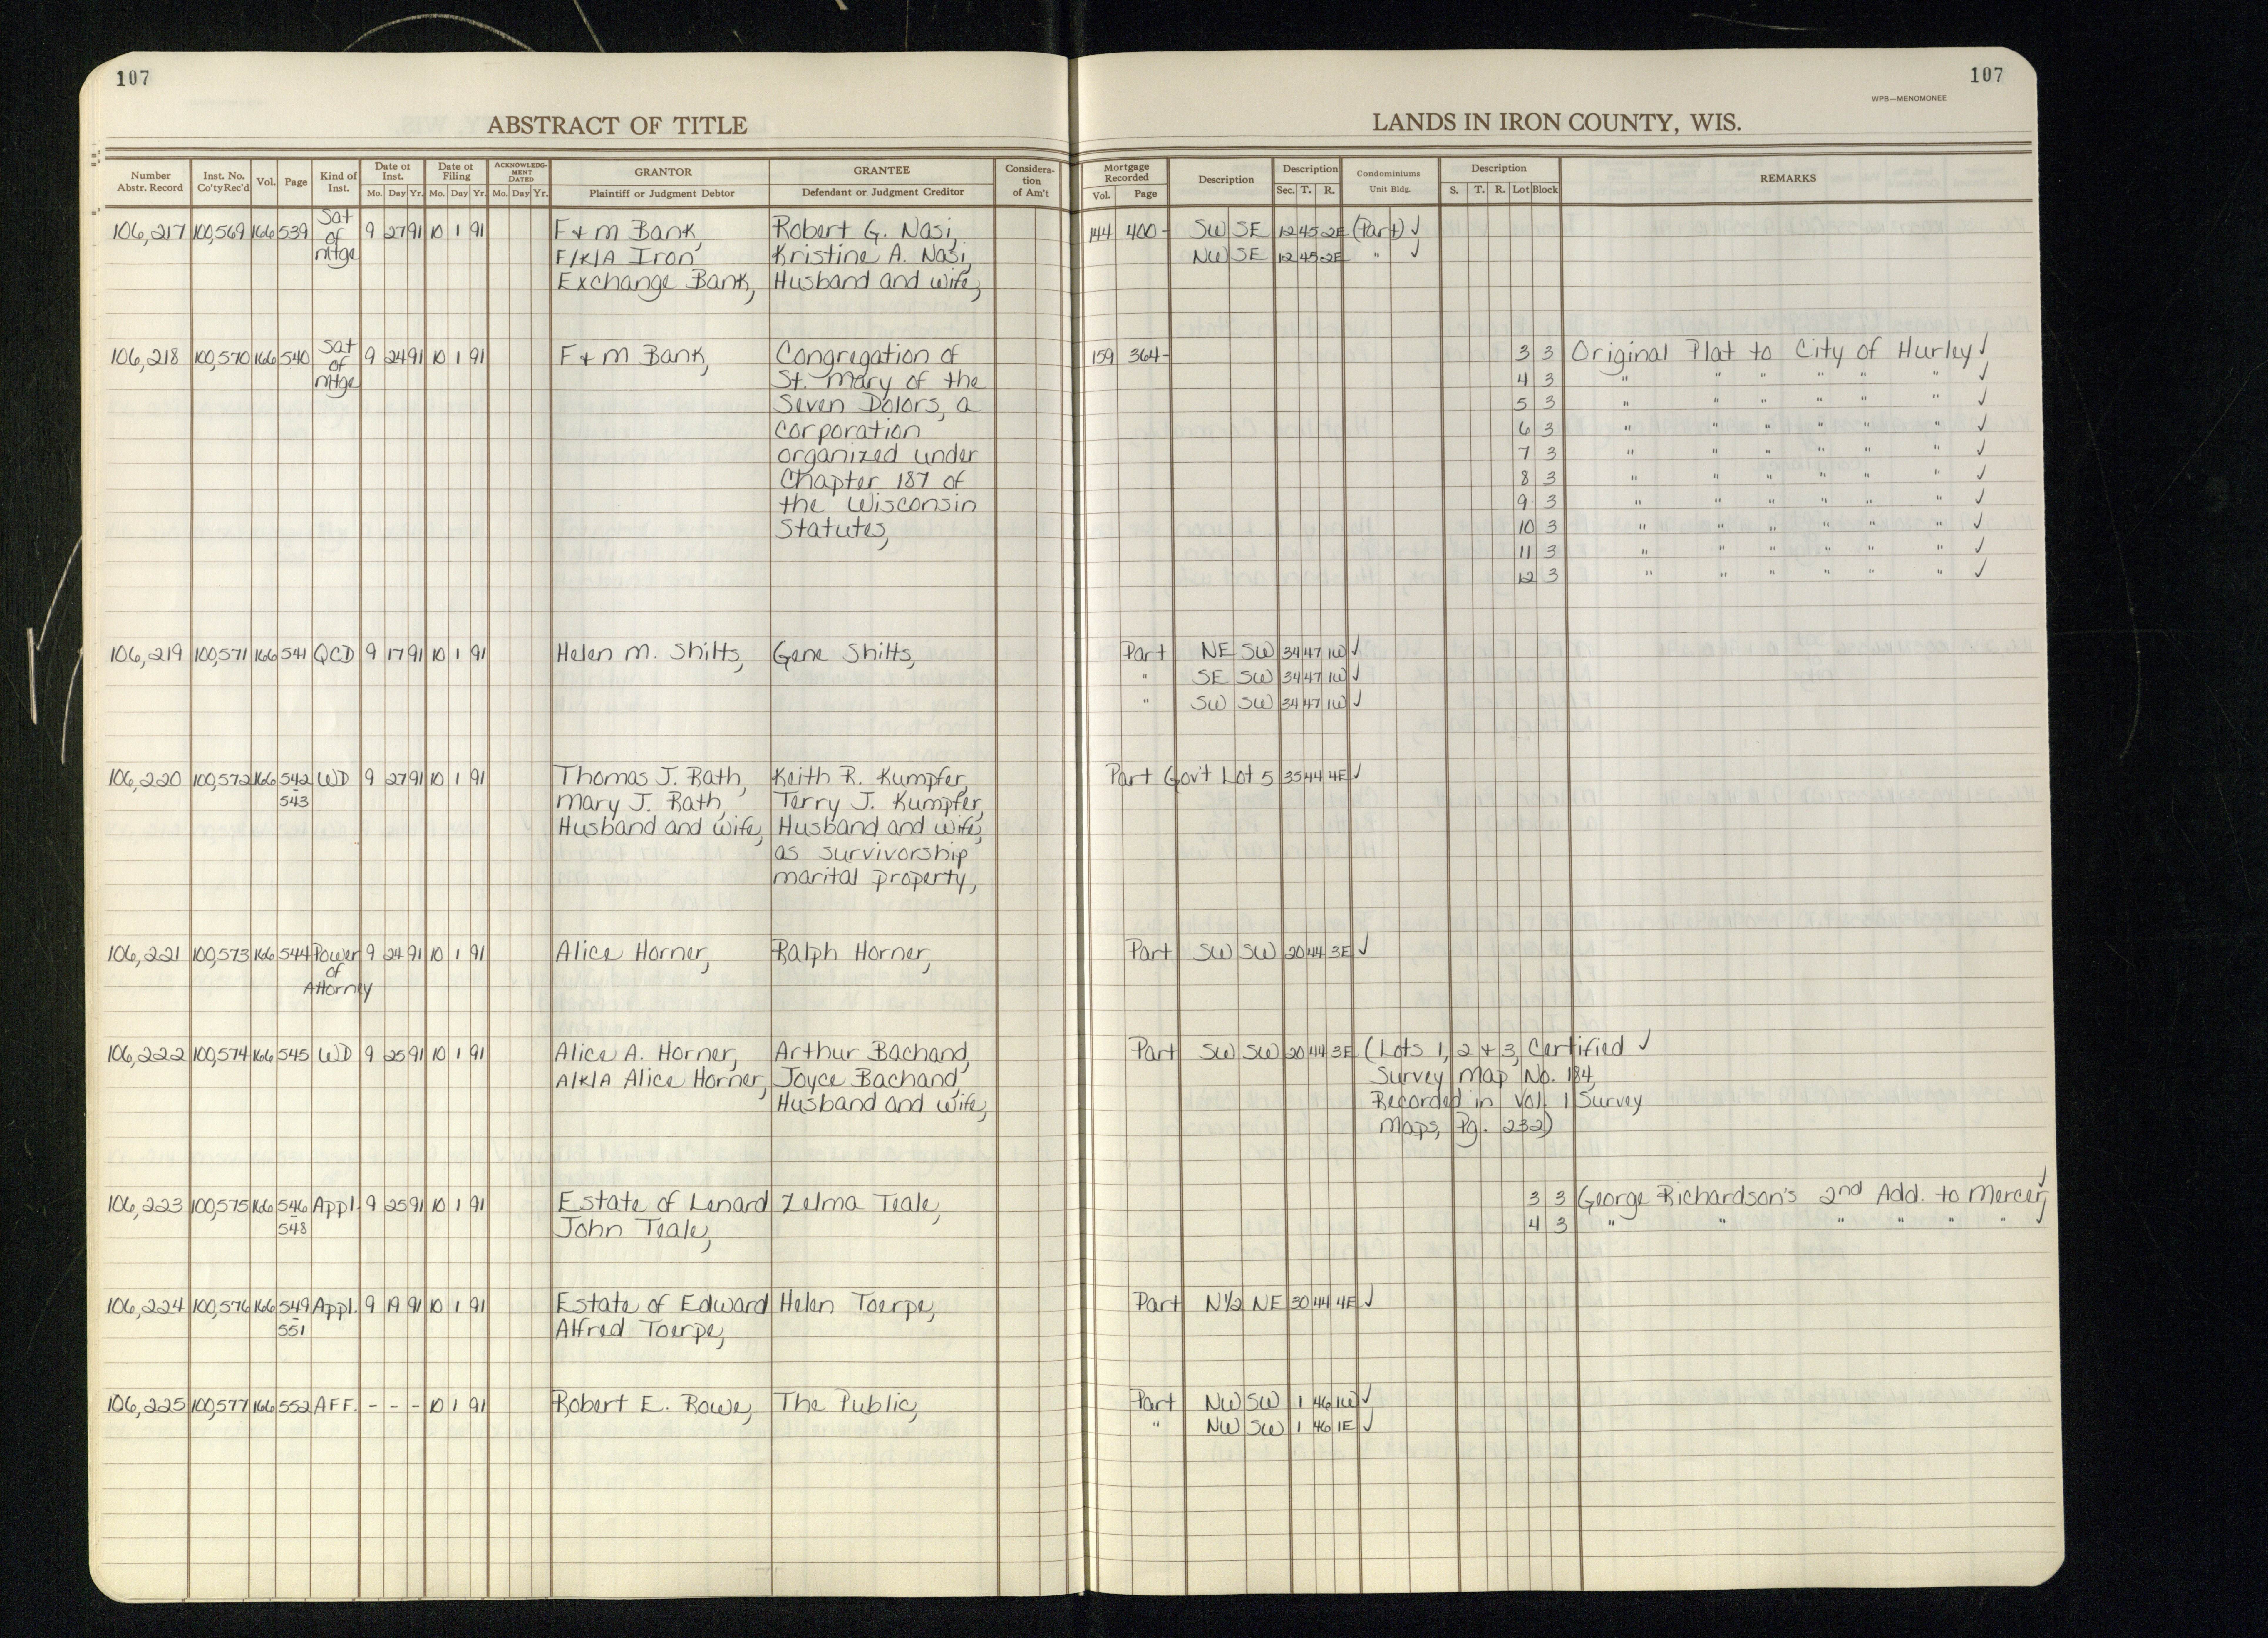 107
107
WPB—MENOMONEE
ABSTRACT OF TITLE
LANDS IN IRON COUNTY, WIS.
Number Abstr. Record | Inst. No. Co'ty Rec'd | Vol. | Page | Kind of Inst. | Date of Inst. Mo. Day Yr. | Date of Filing Mo. Day Yr. | ACKNOWLEDG-MENT DATED Mo. Day Yr. | GRANTOR Plaintiff or Judgment Debtor | GRANTEE Defendant or Judgment Creditor | Considera-tion of Am't | Mortgage Recorded Vol. Page | Description | Description Sec. T. R. | Condominiums Unit Bldg. | Description S. T. R. Lot Block | REMARKS
106,217 100,569 166 539 Sat of mtge 9 27 91 10 1 91 F & M Bank, Robert G. Nasi, 144 400- SW SE 12 45 2E (Part) ✓
F/K/A Iron Kristine A. Nasi, NW SE 12 45 2E " ✓
Exchange Bank, Husband and wife,
106,218 100,570 166 540 Sat of mtge 9 24 91 10 1 91 F & M Bank, Congregation of 159 364- 3 3 Original Plat to City of Hurley ✓
St. Mary of the 4 3 " " " " " " ✓
Seven Dolors, a 5 3 " " " " " " ✓
corporation 6 3 " " " " " " ✓
organized under 7 3 " " " " " " ✓
Chapter 187 of 8 3 " " " " " " ✓
the Wisconsin 9 3 " " " " " " ✓
Statutes, 10 3 " " " " " " ✓
11 3 " " " " " " ✓
12 3 " " " " " " ✓
106,219 100,571 166 541 QCD 9 17 91 10 1 91 Helen M. Shilts, Gene Shilts, Part NE SW 34 47 1W ✓
" SE SW 34 47 1W ✓
" SW SW 34 47 1W ✓
106,220 100,572 166 542-543 WD 9 27 91 10 1 91 Thomas J. Rath, Keith R. Kumpfer, Part Gov't Lot 5 35 44 4E ✓
Mary J. Rath, Terry J. Kumpfer,
Husband and wife, Husband and wife,
as survivorship
marital property,
106,221 100,573 166 544 Power of Attorney 9 24 91 10 1 91 Alice Horner, Ralph Horner, Part SW SW 20 44 3E ✓
106,222 100,574 166 545 WD 9 25 91 10 1 91 Alice A. Horner, Arthur Bachand, Part SW SW 20 44 3E (Lots 1, 2 & 3, Certified ✓
A/K/A Alice Horner, Joyce Bachand, Survey Map No. 184,
Husband and wife, Recorded in Vol. 1 Survey
Maps, Pg. 232)
106,223 100,575 166 546-548 Appl. 9 25 91 10 1 91 Estate of Lenard Zelma Teale, 3 3 George Richardson's 2nd Add. to Mercer, ✓
John Teale, 4 3 " " " " " " ✓
106,224 100,576 166 549-551 Appl. 9 19 91 10 1 91 Estate of Edward Helen Toerpe, Part N1/2 NE 30 44 4E ✓
Alfred Toerpe,
106,225 100,577 166 552 AFF. - - - 10 1 91 Robert E. Rowe, The Public, Part NW SW 1 46 1W ✓
" NW SW 1 46 1E ✓